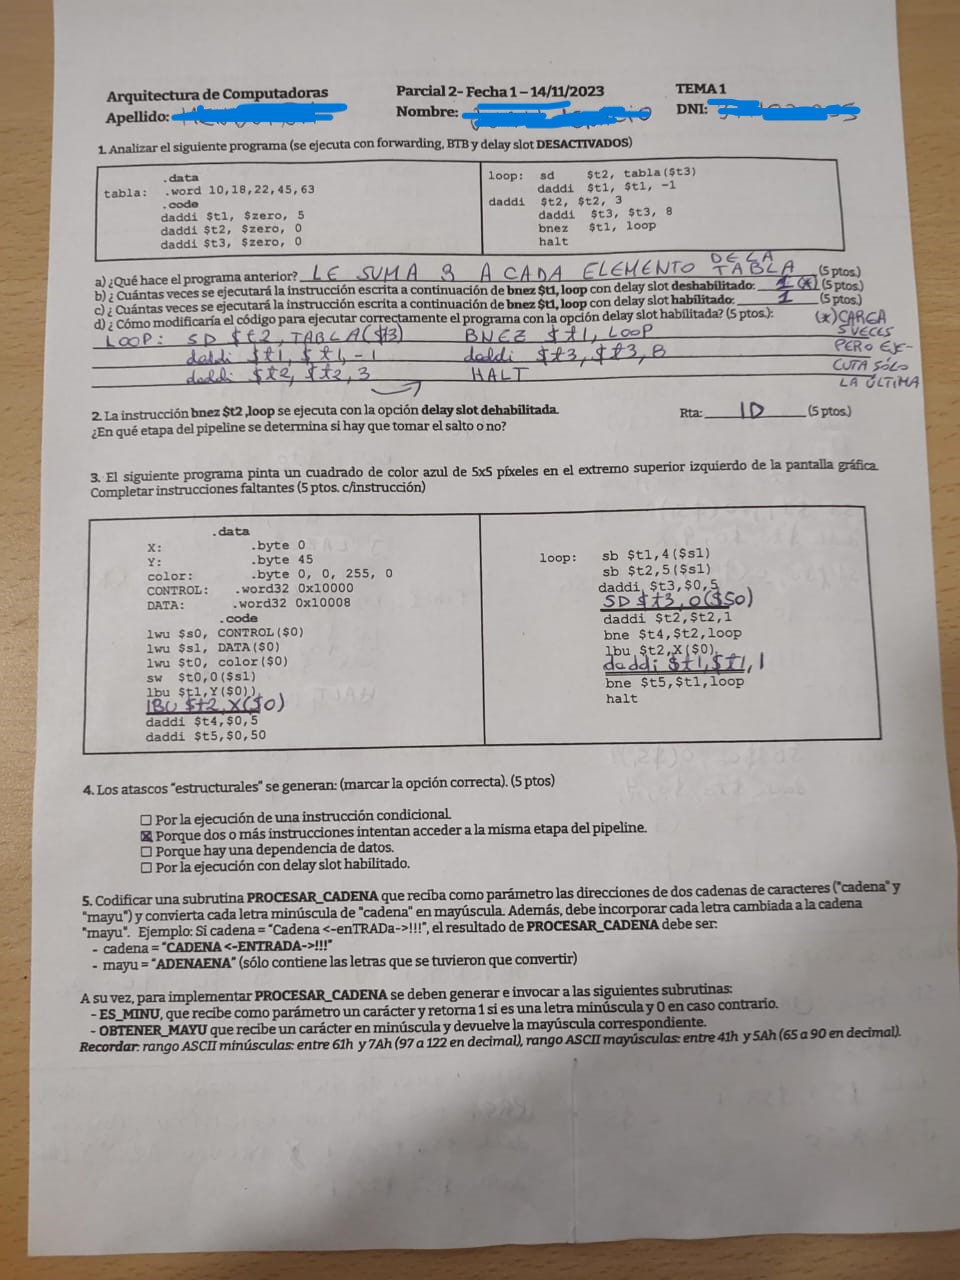 Arquitectura de Computadoras Parcial 2- Fecha 1 – 14/11/2023 TEMA 1
Apellido: Nombre: DNI:
1. Analizar el siguiente programa (se ejecuta con forwarding, BTB y delay slot DESACTIVADOS)
.data
tabla: .word 10,18,22,45,63
.code
daddi $t1, $zero, 5
daddi $t2, $zero, 0
daddi $t3, $zero, 0
loop: sd $t2, tabla($t3)
daddi $t1, $t1, -1
daddi $t2, $t2, 3
daddi $t3, $t3, 8
bnez $t1, loop
halt
a) ¿Qué hace el programa anterior? LE SUMA 3 A CADA ELEMENTO DE LA TABLA (5 ptos.)
b) ¿ Cuántas veces se ejecutará la instrucción escrita a continuación de bnez $t1, loop con delay slot deshabilitado: 1 (*) (5 ptos.)
c) ¿ Cuántas veces se ejecutará la instrucción escrita a continuación de bnez $t1, loop con delay slot habilitado: 1 (5 ptos.)
d) ¿ Cómo modificaría el código para ejecutar correctamente el programa con la opción delay slot habilitada? (5 ptos.):
(*) CARGA
5 VECES
PERO EJE-
CUTA SÓLO
LA ÚLTIMA
LOOP: SD $t2, TABLA($t3) BNEZ $t1, LOOP
daddi $t1, $t1, -1 daddi $t3, $t3, 8
daddi $t2, $t2, 3 HALT
2. La instrucción bnez $t2 ,loop se ejecuta con la opción delay slot dehabilitada. Rta: ID (5 ptos.)
¿En qué etapa del pipeline se determina si hay que tomar el salto o no?
3. El siguiente programa pinta un cuadrado de color azul de 5x5 píxeles en el extremo superior izquierdo de la pantalla gráfica.
Completar instrucciones faltantes (5 ptos. c/instrucción)
.data
X: .byte 0
Y: .byte 45
color: .byte 0, 0, 255, 0
CONTROL: .word32 0x10000
DATA: .word32 0x10008
.code
lwu $s0, CONTROL($0)
lwu $s1, DATA($0)
lwu $t0, color($0)
sw $t0,0($s1)
lbu $t1,Y($0))
lBU $t2,X($0)
daddi $t4,$0,5
daddi $t5,$0,50
loop: sb $t1,4($s1)
sb $t2,5($s1)
daddi $t3,$0,5
SD $t3, 0($S0)
daddi $t2,$t2,1
bne $t4,$t2,loop
lbu $t2,X($0)
daddi $t1,$t1,1
bne $t5,$t1,loop
halt
4. Los atascos "estructurales" se generan: (marcar la opción correcta). (5 ptos)
☐ Por la ejecución de una instrucción condicional.
☒ Porque dos o más instrucciones intentan acceder a la misma etapa del pipeline.
☐ Porque hay una dependencia de datos.
☐ Por la ejecución con delay slot habilitado.
5. Codificar una subrutina PROCESAR_CADENA que reciba como parámetro las direcciones de dos cadenas de caracteres ("cadena" y
"mayu") y convierta cada letra minúscula de "cadena" en mayúscula. Además, debe incorporar cada letra cambiada a la cadena
"mayu". Ejemplo: Si cadena = "Cadena <-enTRADa->!!!", el resultado de PROCESAR_CADENA debe ser:
- cadena = "CADENA <-ENTRADA->!!!"
- mayu = "ADENAENA" (sólo contiene las letras que se tuvieron que convertir)
A su vez, para implementar PROCESAR_CADENA se deben generar e invocar a las siguientes subrutinas:
- ES_MINU, que recibe como parámetro un carácter y retorna 1 si es una letra minúscula y 0 en caso contrario.
- OBTENER_MAYU que recibe un carácter en minúscula y devuelve la mayúscula correspondiente.
Recordar: rango ASCII minúsculas: entre 61h y 7Ah (97 a 122 en decimal), rango ASCII mayúsculas: entre 41h y 5Ah (65 a 90 en decimal).